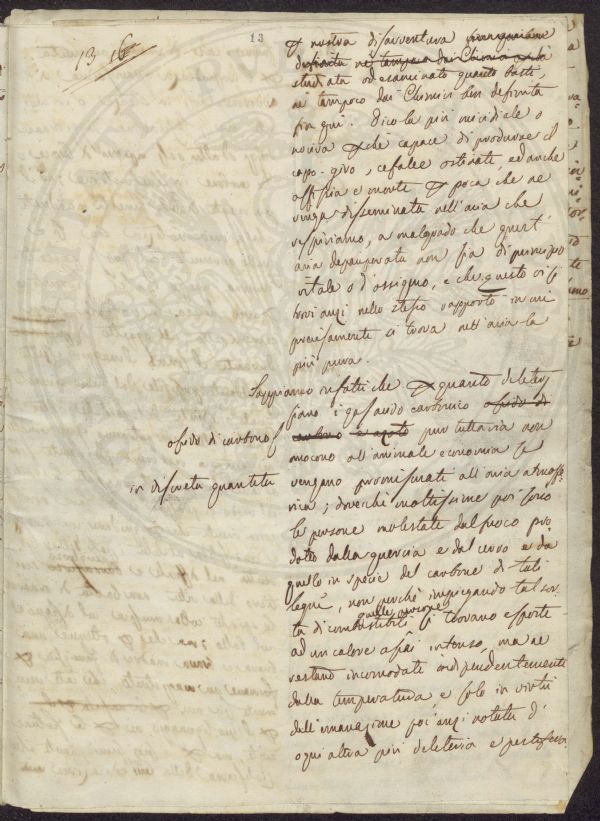 13
13 16
& nostra disavventura
studiata od esaminata quanto basti,
ne tampoco dai Chimici ben definita
fin qui. Dico la più micidiale o
nociva & chè capace di produrre il
capo-giro, cefalee ostinate, ed anche
asfissia e morte & poca che ne
venga disseminata nell'aria che
respiriamo, a malgrado che quest'
aria depauperata non sia di principio
vitale o d'ossigeno, e che questo vi si
trovi anzi nello stesso rapporto in cui
precisamente si trova nell'aria la
più pura.
Sappiamo infatti che & quanto delete-
siano i gas acido carbonico ossido di
carbonio e azoto pur tuttavia non
ossido di carbonio
nuocono all'animale economia se
in discreta quantita
vengano frammisurati all'aria atmosfe-
rica; dovechè moltissime poi sono
le persone molestate dal fuoco pro-
dotto dalla quercia e dal cerro e da
quello in specie del carbone di tali
legne, non perchè impiegando tal sor-
quelle persone
ta di combustibili si trovano esposte
ad un calore assai intenso, ma ne
restano incomodate indipendentemente
dalla temperatura, e solo in virtù
dell'emanazione poc'anzi notata d'
ogni altra più deleteria e pestifera